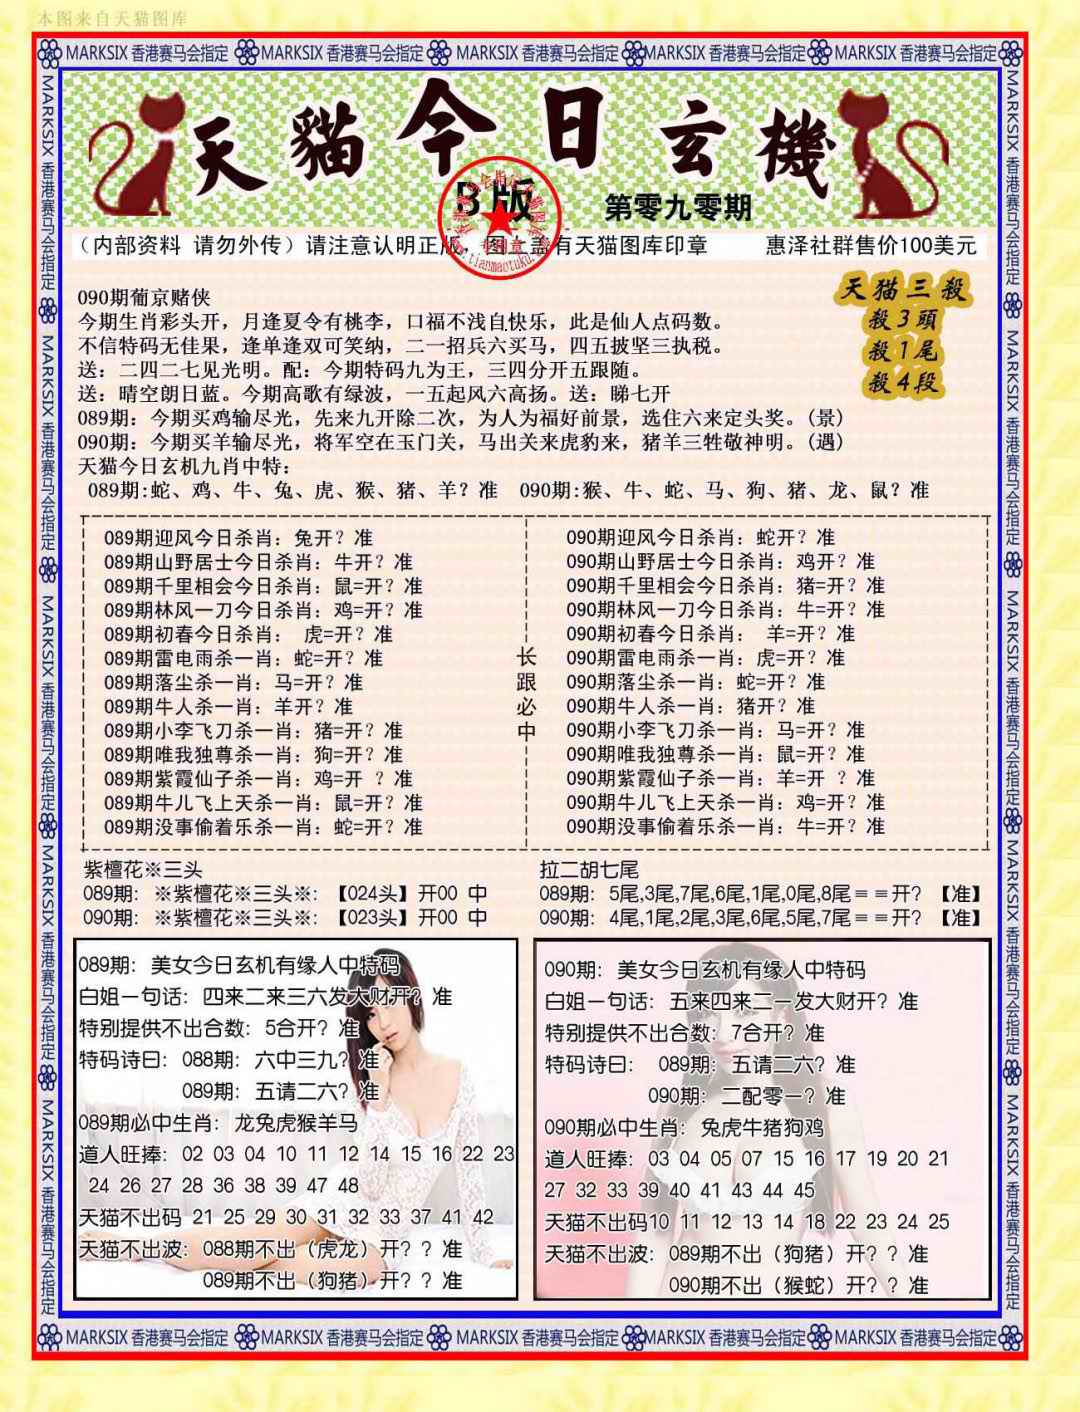 本图来自天猫图库
MARKSIX 香港赛马会指定 MARKSIX 香港赛马会指定 MARKSIX 香港赛马会指定 MARKSIX 香港赛马会指定 MARKSIX 香港赛马会指定
MARKSIX 香港赛马会指定 MARKSIX 香港赛马会指定 MARKSIX 香港赛马会指定 MARKSIX 香港赛马会指定 MARKSIX 香港赛马会指定
MARKSIX 香港赛马会指定 MARKSIX 香港赛马会指定 MARKSIX 香港赛马会指定 MARKSIX 香港赛马会指定 MARKSIX 香港赛马会指定
天貓今日玄機
B版
第零九零期
.tianmaotuku.
（内部资料 请勿外传）请注意认明正版，图上盖有天猫图库印章
惠泽社群售价100美元
天猫三殺
殺3頭
殺1尾
殺4段
090期葡京赌侠
今期生肖彩头开，月逢夏令有桃李，口福不浅自快乐，此是仙人点码数。
不信特码无佳果，逢单逢双可笑纳，二一招兵六买马，四五披坚三执税。
送：二四二七见光明。配：今期特码九为王，三四分开五跟随。
送：晴空朗日蓝。今期高歌有绿波，一五起风六高扬。送：睇七开
089期：今期买鸡输尽光，先来九开除二次，为人为福好前景，选住六来定头奖。(景)
090期：今期买羊输尽光，将军空在玉门关，马出关来虎豹来，猪羊三牲敬神明。(遇)
天猫今日玄机九肖中特：
089期:蛇、鸡、牛、兔、虎、猴、猪、羊？准 090期:猴、牛、蛇、马、狗、猪、龙、鼠？准
089期迎风今日杀肖：兔开？准
089期山野居士今日杀肖：牛开？准
089期千里相会今日杀肖：鼠=开？准
089期林风一刀今日杀肖：鸡=开？准
089期初春今日杀肖： 虎=开？准
089期雷电雨杀一肖：蛇=开？准
089期落尘杀一肖：马=开？准
089期牛人杀一肖：羊开？准
089期小李飞刀杀一肖：猪=开？准
089期唯我独尊杀一肖：狗=开？准
089期紫霞仙子杀一肖：鸡=开 ？准
089期牛儿飞上天杀一肖：鼠=开？准
089期没事偷着乐杀一肖：蛇=开？准
长跟必中
090期迎风今日杀肖：蛇开？准
090期山野居士今日杀肖：鸡开？准
090期千里相会今日杀肖：猪=开？准
090期林风一刀今日杀肖：牛=开？准
090期初春今日杀肖： 羊=开？准
090期雷电雨杀一肖：虎=开？准
090期落尘杀一肖：蛇=开？准
090期牛人杀一肖：猪开？准
090期小李飞刀杀一肖：马=开？准
090期唯我独尊杀一肖：鼠=开？准
090期紫霞仙子杀一肖：羊=开 ？准
090期牛儿飞上天杀一肖：鸡=开？准
090期没事偷着乐杀一肖：牛=开？准
紫檀花※三头
089期：※紫檀花※三头※：【024头】开00 中
090期：※紫檀花※三头※：【023头】开00 中
拉二胡七尾
089期：5尾,3尾,7尾,6尾,1尾,0尾,8尾＝＝开？【准】
090期：4尾,1尾,2尾,3尾,6尾,5尾,7尾＝＝开？【准】
089期：美女今日玄机有缘人中特码
白姐一句话：四来二来三六发大财开？准
特别提供不出合数：5合开？准
特码诗曰：088期：六中三九？准
089期：五请二六？准
089期必中生肖：龙兔虎猴羊马
道人旺捧：02 03 04 10 11 12 14 15 16 22 23
24 26 27 28 36 38 39 47 48
天猫不出码 21 25 29 30 31 32 33 37 41 42
天猫不出波：088期不出（虎龙）开？？准
089期不出（狗猪）开？？准
090期：美女今日玄机有缘人中特码
白姐一句话：五来四来二一发大财开？准
特别提供不出合数：7合开？准
特码诗曰： 089期：五请二六？准
090期：二配零一？准
090期必中生肖：兔虎牛猪狗鸡
道人旺捧：03 04 05 07 15 16 17 19 20 21
27 32 33 39 40 41 43 44 45
天猫不出码10 11 12 13 14 18 22 23 24 25
天猫不出波：089期不出（狗猪）开？？准
090期不出（猴蛇）开？？准
MARKSIX 香港赛马会指定 MARKSIX 香港赛马会指定 MARKSIX 香港赛马会指定 MARKSIX 香港赛马会指定 MARKSIX 香港赛马会指定